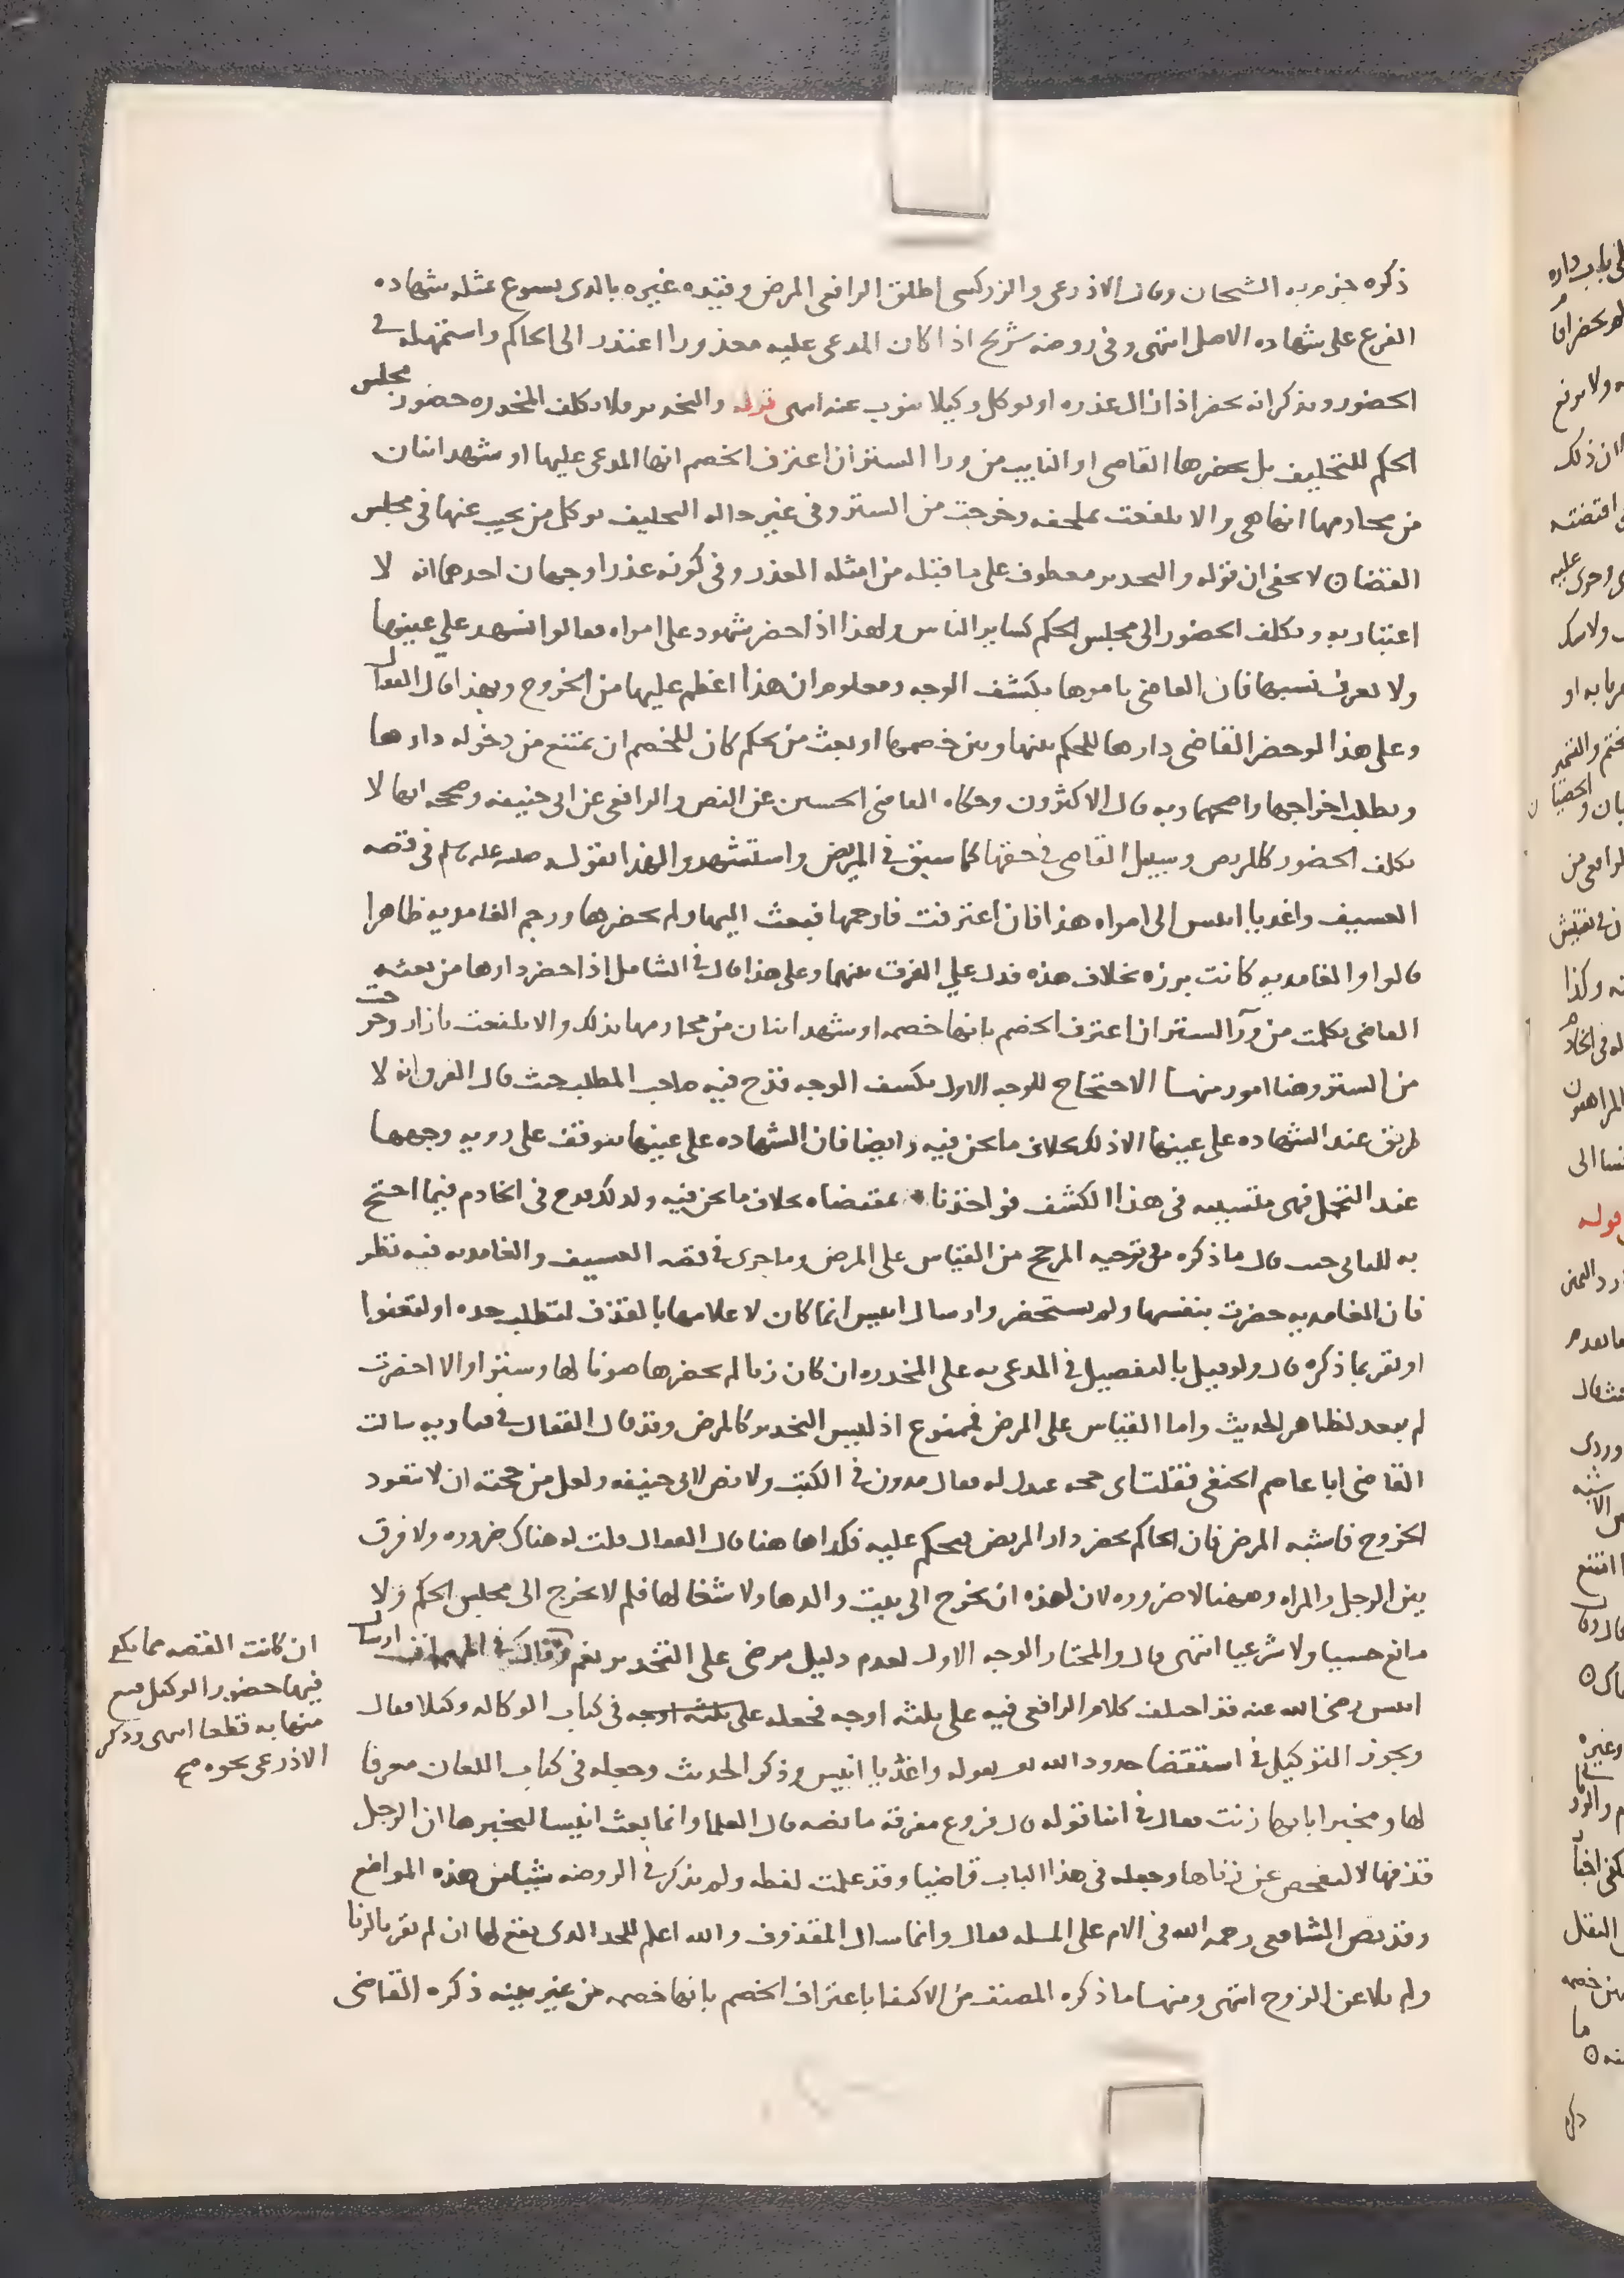 ذكره جزم به الشيخان وقال الاذرعي والزركشي اطلق الرافعي المرض وقيده غيره بالذي يسوغ بمثله شهاده
الفرع على شهاده الاصل انتهى وفي روضه شريح اذا كان المدعى عليه معذورا اعتذر الى الحاكم واستمهله في
الحضور ويذكر انه يحضر اذا زال عذره او يوكل وكيلا ينوب عنه انتهى قوله والتخدير فلا تكلف المخدره حضور مجلس
الحكم للتحليف بل يحضرها القاضي او النايب من ورا الستر ان اعترف الخصم انها المدعى عليها او شهد اثنان
من محارمها انها هي والا تلفعت بملحفه وخرجت من الستر وفي غير حاله التحليف توكل من يجيب عنها في مجلس
القضا ن لا يخفى ان قوله والتخدير معطوف على ما قبله من امثله العذر وفي كونه عذرا وجهان احدهما انه لا
اعتبار به وتكلف الحضور الى مجلس الحكم كساير الناس ولهذا اذا حضر شهود على امراه فقالوا نشهد على عينها
ولا نعرف نسبها فان القاضي يامرها بكشف الوجه ومعلوم ان هذا اعظم عليها من الخروج وبهذا قال القفال
وعلى هذا لو حضر القاضي دارها للحكم بينها وبين خصمها او بعث من يحكم كان للخصم ان يمتنع من دخوله دارها
ويطلب اخراجها واصحهما وبه قال الاكثرون وحكاه القاضي الحسين عن النص والرافعي عن ابي حنيفه وصححه انها لا
تكلف الحضور كالمريض وسبيل القاضي في حقها كما سبق في المريض واستشهدوا لهذا بقوله صلى الله عليه وسلم في قصه
العسيف واغد يا انيس الى امراه هذا فان اعترفت فارجمها فبعث اليها ولم يحضرها ورجم الغامديه ظاهرا
قالوا والغامديه كانت برزه بخلاف هذه فدل على الفرق بينهما وعلى هذا قال في الشامل اذا حضر دارها من بعثه
القاضي تكلمت من ورآ الستر ان اعترف الخصم بانها خصمه او شهد اثنان من محارمها بذلك والا تلفعت بازار وخرجت
من الستر وهنا امور منها الاحتجاج للوجه الاول بكشف الوجه قدح فيه صاحب المطلب حيث قال الفرق انه لا
طريق عند الشهاده على عينها الا ذلك بخلاف ما نحن فيه وايضا فان الشهاده على عينها تتوقف على رويه وجهها
عند التحمل فهي متسببه في هذا الكشف فواخذنا بمقتضاه بخلاف ما نحن فيه ولذلك قدح في الخادم فيما احتج
به للثاني حيث قال ما ذكره من توجيه المرجح من القياس على المرض وما جرى في قصه العسيف والغامديه فيه نظر
فان الغامديه حضرت بنفسها ولم تستحضر وارسال انيس انما كان لاعلامها بالقذف لتطلب حده او لتعفوا
او تقر بما ذكره قال ولو قيل بالتفصيل في المدعى به على المخدره ان كان زنا لم يحضرها صونا لها وسترا والا احضرت
لم يبعد لظاهر الحديث واما القياس على المرض فممنوع اذ ليس التخدير كالمرض وقد قال القفال في فتاويه سالت
القاضي ابا عاصم الحنفي فقلت اي حجه عدل له فقال مدون في الكتب ولا نص لابي حنيفه ولعل من حجته ان لا تتعود
الخروج فاشبه المرض فان الحاكم يحضر دار المريض ليحكم عليه فكذا ها هنا قال القفال قلت له هناك ضروره ولا فرق
بين الرجل والمراه وههنا لا ضروره لان لهذه ان تخرج الى بيت والدها ولا شغل لها فلم لا تخرج الى مجلس الحكم ولا
مانع حسيا ولا شرعيا انتهى قال والمختار الوجه الاول لعدم دليل مرضي على التخدير نعم وقال في المهمات ارسال
انيس رضي الله عنه قد اختلف كلام الرافعي فيه على ثلثه اوجه فجعله على ثلثه اوجه في كتاب الوكاله وكيلا فقال
ويجوز التوكيل في استيفا حدود الله لقوله واغد يا انيس وذكر الحديث وجعله في كتاب اللعان معرفا
لها ومخبرا بانها زنت فقال في اثنا قوله قال فروع مفرقه ما نصه قال العلما وانما بعث انيسا ليخبرها ان الرجل
قذفها لا ليفحص عن زناها وجعله في هذا الباب قاضيا وقد علمت لفظه ولم يذكر في الروضه شيا من هذه المواضع
وقد نص الشافعي رحمه الله في الام على المسله فقال وانما سال المقذوف والله اعلم للحد الذي يقع لها ان لم تقر بالزنا
ولم يلاعن الزوج انتهى ومنها ما ذكره المصنف من الاكتفا باعتراف الخصم بانها خصمه من غير بينه ذكره القاضي
ان كانت القصه مما يكفي
فيها حضور الوكيل قنع
منها به قطعا انتهى وذكر
الاذرعي نحوه صح